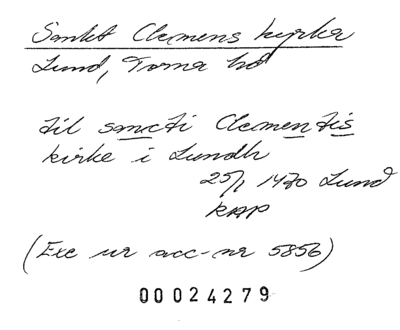 Sankt Clemens kyrka
Lund, Torna hd
til sancti Clementis
kirke i Lundh
25/1 1470 Lund
RAP
(Exc ur acc-nr 5856)
00024279